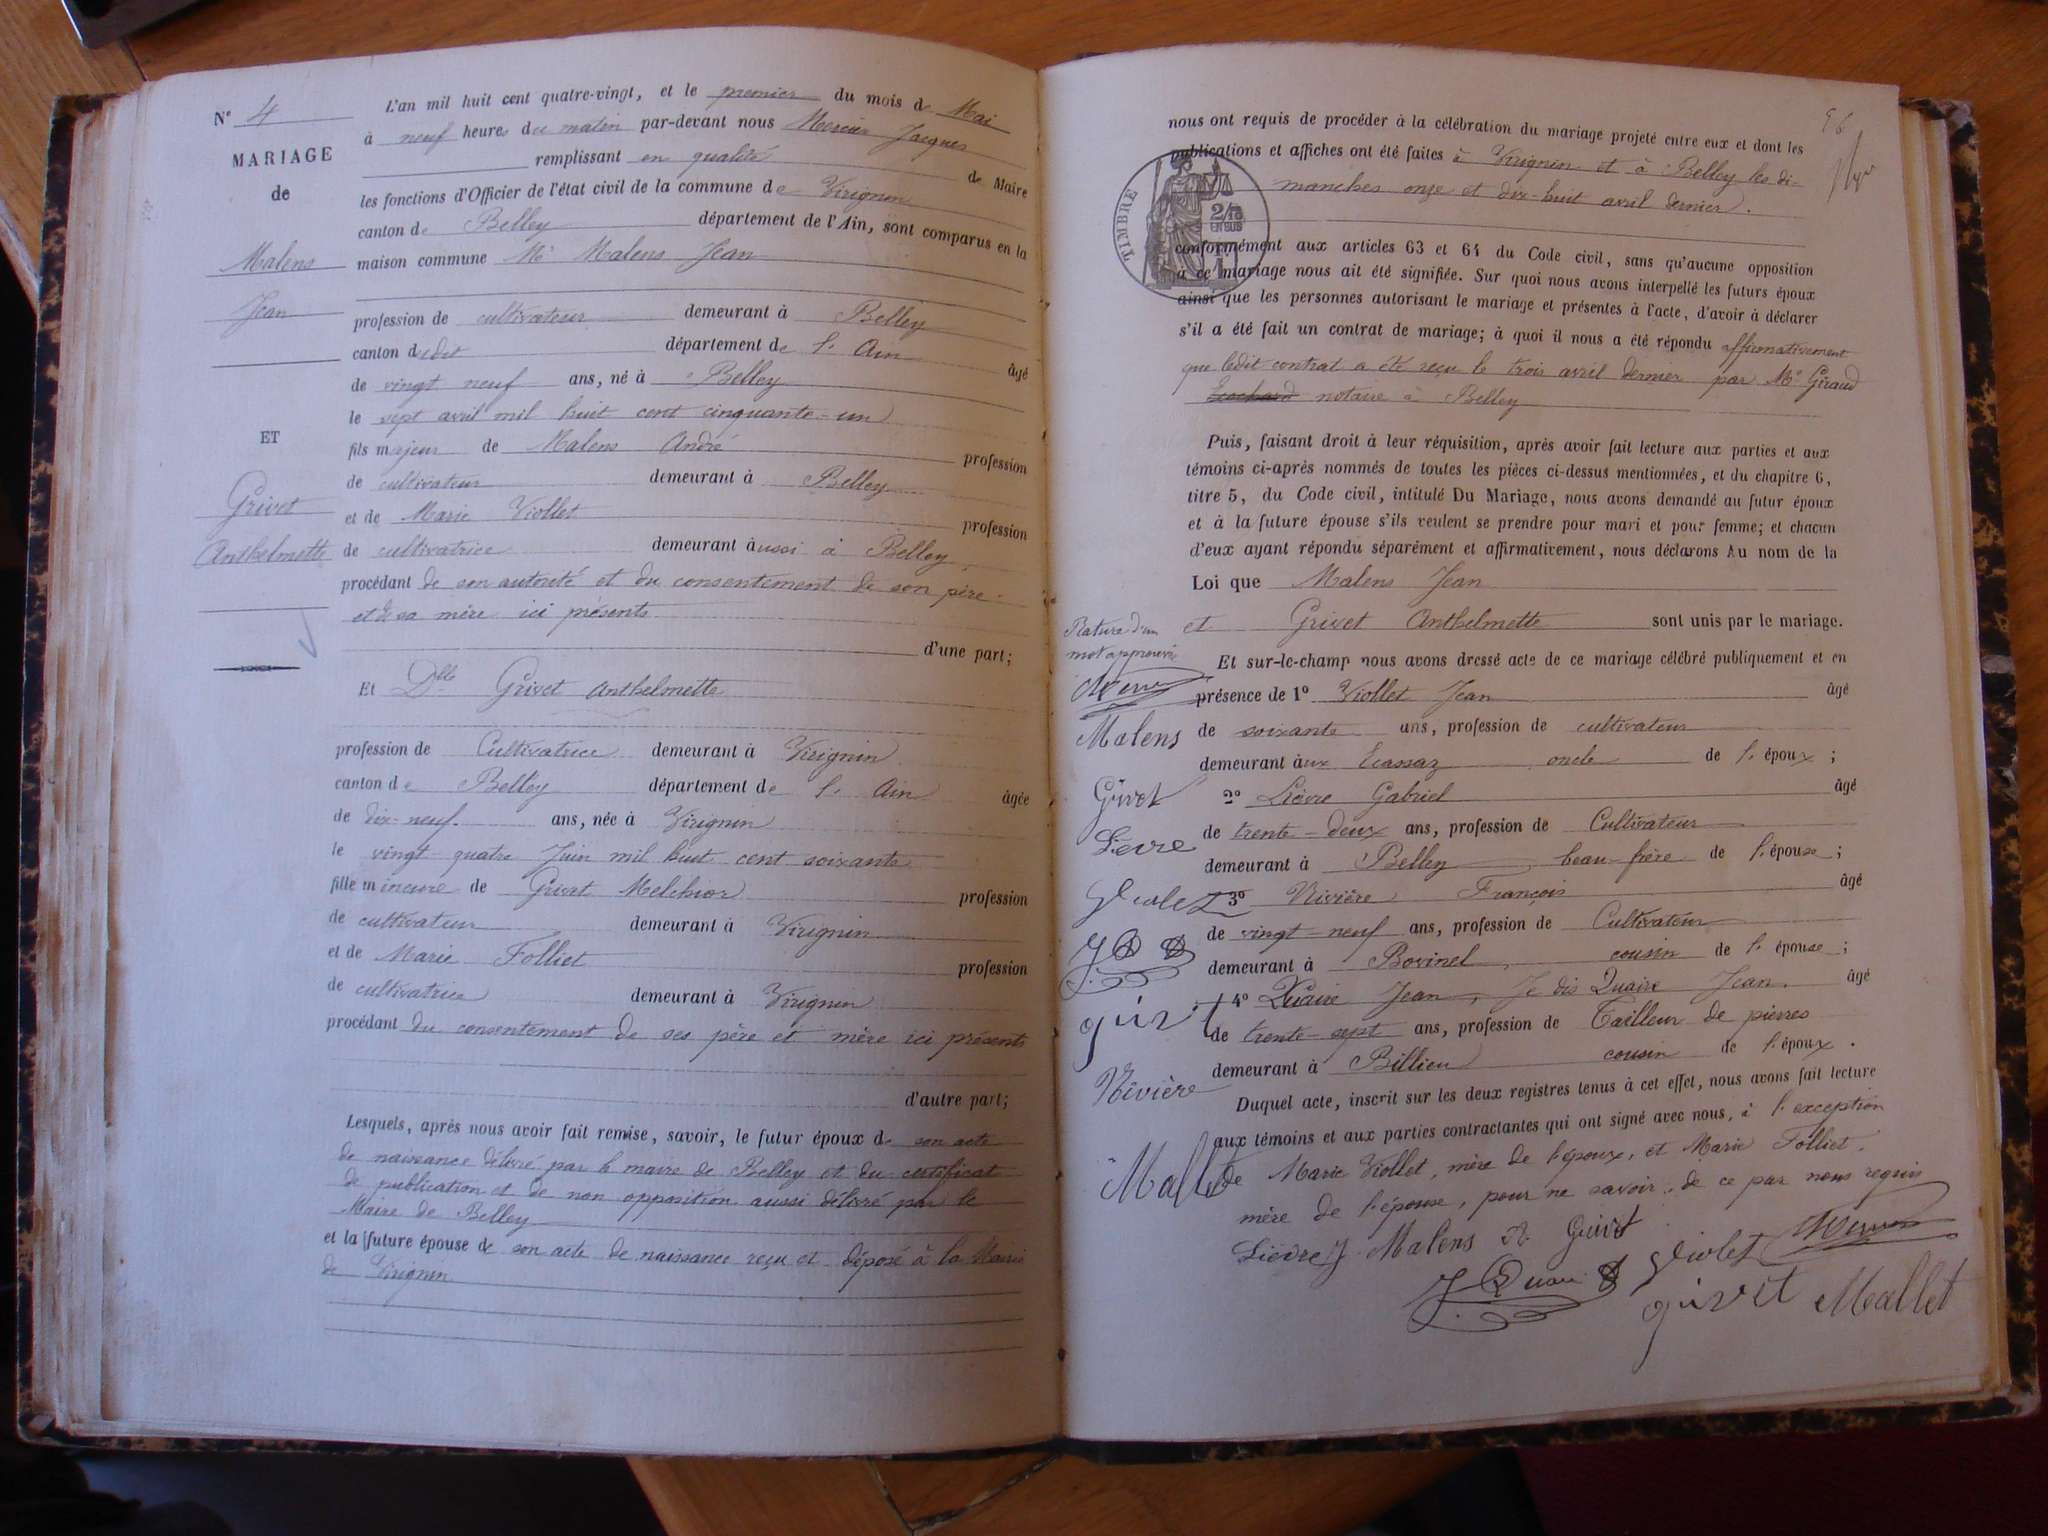 N° 4
MARIAGE
de
Malens
Jean
ET
Grivet
Anthelmette
L'an mil huit cent quatre-vingt, et le premier du mois de Mai
à neuf heures du matin par-devant nous Mercier Jacques
remplissant en qualité de Maire
les fonctions d'Officier de l'état civil de la commune de Virignin
canton de Belley département de l'Ain, sont comparus en la
maison commune Mr Malens Jean
profession de cultivateur demeurant à Belley
canton dudit département de l'Ain âgé
de vingt neuf ans, né à Belley
le sept avril mil huit cent cinquante-un
fils majeur de Malens André profession
de cultivateur demeurant à Belley
et de Marie Viollet profession
de cultivatrice demeurant aussi à Belley,
procédant de son autorité et du consentement de son père
et de sa mère ici présents
d'une part;
Et Dlle Grivet Anthelmette
profession de Cultivatrice demeurant à Virignin
canton de Belley département de l'Ain âgée
de dix-neuf ans, née à Virignin
le vingt quatre Juin mil huit cent soixante
fille mineure de Grivet Melchior profession
de cultivateur demeurant à Virignin
et de Marie Folliet profession
de cultivatrice demeurant à Virignin
procédant du consentement de ses père et mère ici présents
d'autre part;
Lesquels, après nous avoir fait remise, savoir, le futur époux de son acte
de naissance délivré par le maire de Belley et du certificat
de publication et de non opposition aussi délivré par le
Maire de Belley
et la future épouse de son acte de naissance reçu et déposé à la Mairie
de Virignin
nous ont requis de procéder à la célébration du mariage projeté entre eux et dont les
publications et affiches ont été faites à Virignin et à Belley les di-
manches onze et dix-huit avril dernier.
TIMBRE
2/10
EN SUS
conformément aux articles 63 et 64 du Code civil, sans qu'aucune opposition
à ce mariage nous ait été signifiée. Sur quoi nous avons interpellé les futurs époux
ainsi que les personnes autorisant le mariage et présentes à l'acte, d'avoir à déclarer
s'il a été fait un contrat de mariage; à quoi il nous a été répondu affirmativement
que ledit contrat a été reçu le trois avril dernier par Me Giraud
notaire à Belley
Puis, faisant droit à leur réquisition, après avoir fait lecture aux parties et aux
témoins ci-après nommés de toutes les pièces ci-dessus mentionnées, et du chapitre 6,
titre 5, du Code civil, intitulé Du Mariage, nous avons demandé au futur époux
et à la future épouse s'ils veulent se prendre pour mari et pour femme; et chacun
d'eux ayant répondu séparément et affirmativement, nous déclarons Au nom de la
Loi que Malens Jean
et Grivet Anthelmette sont unis par le mariage.
Et sur-le-champ nous avons dressé acte de ce mariage célébré publiquement et en
présence de 1° Viollet Jean âgé
de soixante ans, profession de cultivateur
demeurant aux Ecassaz oncle de l'époux;
2° Lièvre Gabriel âgé
de trente-deux ans, profession de Cultivateur
demeurant à Belley beau-frère de l'épouse;
3° Rivière François âgé
de vingt-neuf ans, profession de Cultivateur
demeurant à Bovinel, cousin de l'épouse;
4° Quaire Jean, Je dis Quaire Jean. âgé
de trente-sept ans, profession de Tailleur de pierres
demeurant à Billieu cousin de l'époux.
Duquel acte, inscrit sur les deux registres tenus à cet effet, nous avons fait lecture
aux témoins et aux parties contractantes qui ont signé avec nous, à l'exception
de Marie Viollet, mère de l'époux, et Marie Folliet,
mère de l'épouse, pour ne savoir, de ce par nous requis
Rature d'un
mot approuvée
Malens
Grivet
Lievre
Violet
Rivière
Mallet
Lièvre J Malens A Grivet
Violet
J Quaire
givet Mallet